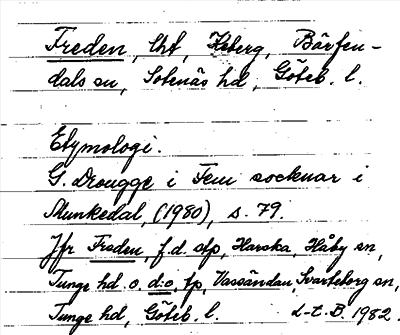 Freden, lht, Heberg, Bärfen-
dals sn, Sotenäs hd, Göteb. l.
Etymologi.
G. Drougge i Fem socknar i
Munkedal, (1980), s. 79.
Jfr Freden, f.d. stp, Harska, Håby sn,
Tunge hd o. d:o, tp, Vassändan, Svarteborg sn,
Tunge hd, Göteb. l. L-t. B. 1982.